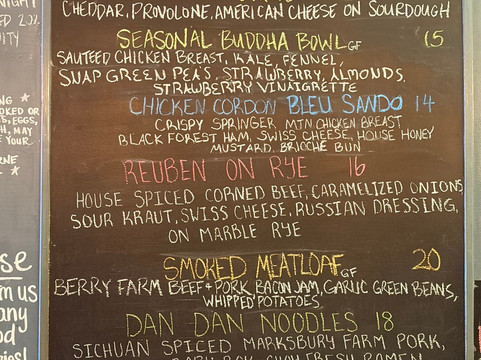 CHEDDAR, PROVOLONE, AMERICAN CHEESE ON SOURDOUGH
SEASONAL BUDDHA BOWL GF 15
SAUTEED CHICKEN BREAST, KALE, FENNEL,
SNAP GREEN PEAS, STRAWBERRY, ALMONDS,
STRAWBERRY VINAIGRETTE
CHICKEN CORDON BLEU SANDO 14
CRISPY SPRINGER MTN CHICKEN BREAST
BLACK FOREST HAM, SWISS CHEESE, HOUSE HONEY
MUSTARD, BRIOCHE BUN
REUBEN ON RYE 16
HOUSE SPICED CORNED BEEF, CARAMELIZED ONIONS
SOUR KRAUT, SWISS CHEESE, RUSSIAN DRESSING,
ON MARBLE RYE
SMOKED MEATLOAF GF 20
BERRY FARM BEEF + PORK, BACON JAM, GARLIC GREEN BEANS,
WHIPPED POTATOES
DAN DAN NOODLES 18
SICHUAN SPICED MARKSBURY FARM PORK,